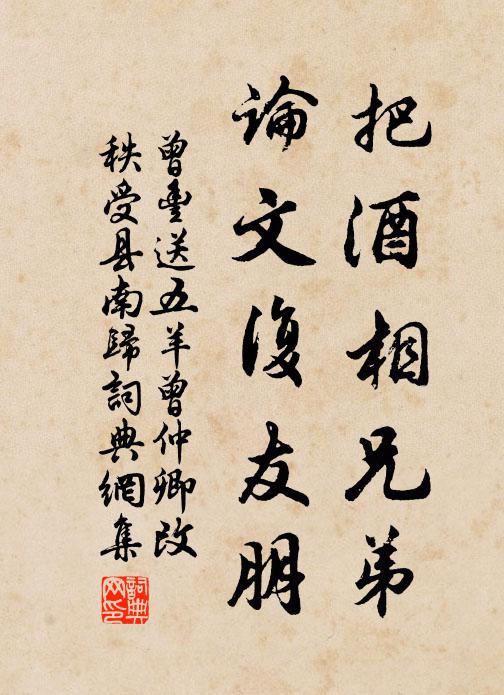 把酒相兄弟
論文復友朋
曾豐送五羊曾仲卿改
秩受县南歸詞典網集
詞典网印